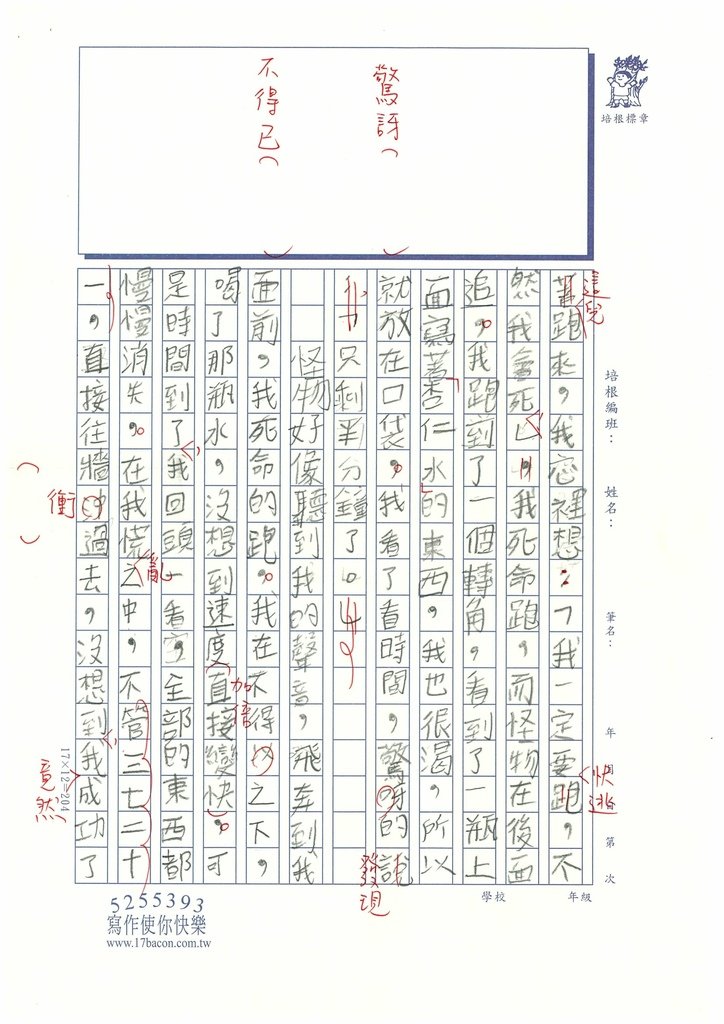 驚訝（ ）
不得已（ ）
培根標章
培根編班：
姓名：
筆名：
年 月 第 次
學校 年級
著跑來，我心裡想：「我一定要跑，不
然我會死」我死命跑，而怪物在後面
追。我跑到了一個轉角，看到了一瓶上
面寫著杏仁水的東西，我也很渴，所以
就放在口袋。我看了看時間，驚呀的說
只剩半分鐘了。
怪物好像聽到我的聲音，飛奔到我
面前，我死命的跑。我在不得以之下，
喝了那瓶水，沒想到速度直接變快。可
是時間到了我回頭一看空全部的東西都
慢慢消失。在我慌之中，不管三七二十
一，直接往牆沖過去，沒想到我成功了
這兒
快逃
發現
加倍
亂
（衝）
竟然
17×12=204
5255393
寫作使你快樂
www.17bacon.com.tw